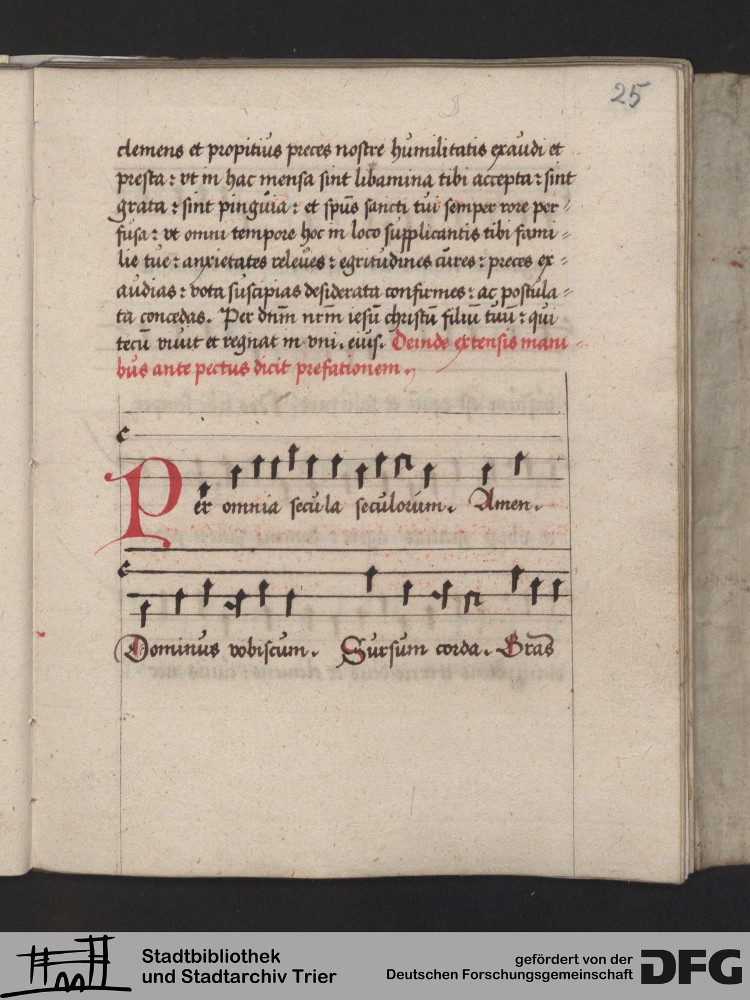 25
clemens et propitius preces nostre humilitatis exaudi et
presta : vt in hac mensa sint libamina tibi accepta : sint
grata : sint pinguia : et sp̄us sancti tui semper rore per⸗
fusa : vt omni tempore hoc in loco supplicantis tibi fami⸗
lie tue : anxietates releues : egritudines cures : preces ex⸗
audias : vota suscipias desiderata confirmes : ac postula⸗
ta concedas. Per dn̄m nr̄m iesū christū filiū tuū : qui
tecū viuit et regnat in vni. eius. Deinde extensis mani⸗
bus ante pectus dicit prefationem.
Per omnia secula seculorum. Amen.
Dominus vobiscum. Sursum corda. Gras̄
Stadtbibliothek
und Stadtarchiv Trier
gefördert von der
Deutschen Forschungsgemeinschaft
DFG